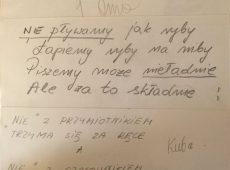 NIE pływamy jak ryby
Łapiemy ryby na niby
Piszemy może nieładnie
Ale za to składnie
"NIE" Z PRZYMIOTNIKIEM
TRZYMA SIĘ ZA RĘCE
A
Kuba
"NIE" Z